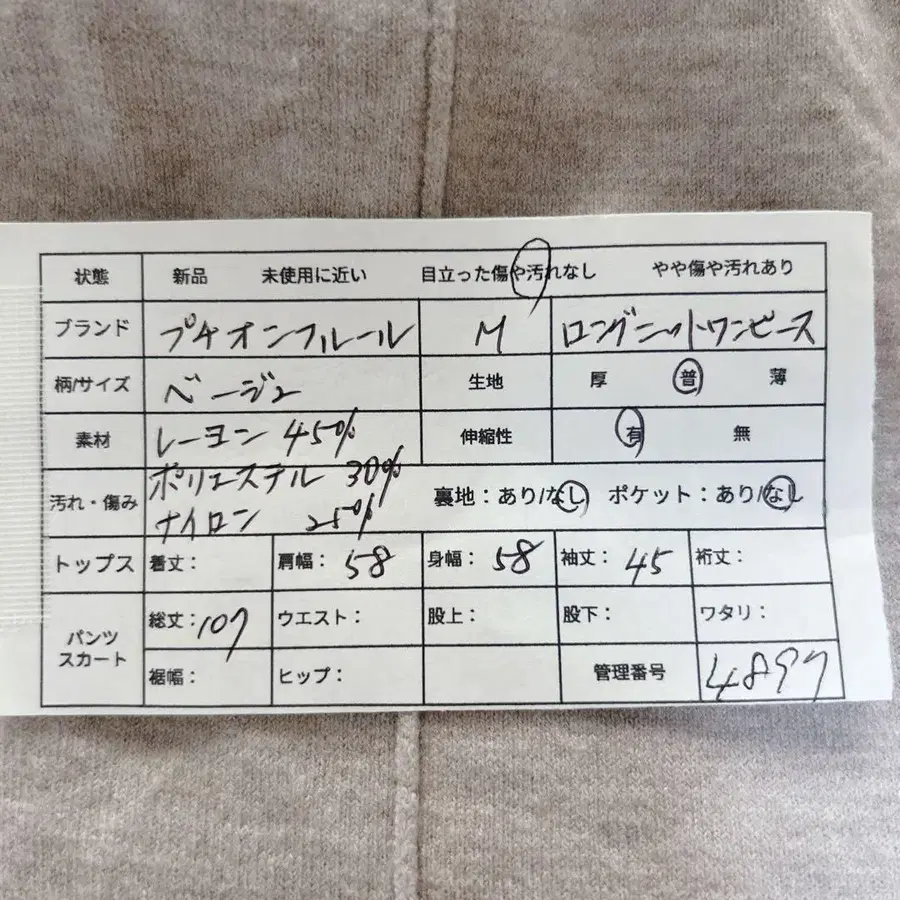 状態 新品 未使用に近い 目立った傷や汚れなし やや傷や汚れあり
ブランド プチオンフルール M ロングニットワンピース
柄/サイズ ベージュ 生地 厚 普 薄
素材 レーヨン 45% 伸縮性 有 無
ポリエステル 30%
汚れ・傷み ナイロン 25% 裏地:あり/なし ポケット:あり/なし
トップス 着丈: 肩幅: 58 身幅: 58 袖丈: 45 裄丈:
パンツ スカート 総丈: 107 ウエスト: 股上: 股下: ワタリ:
裾幅: ヒップ: 管理番号 4897